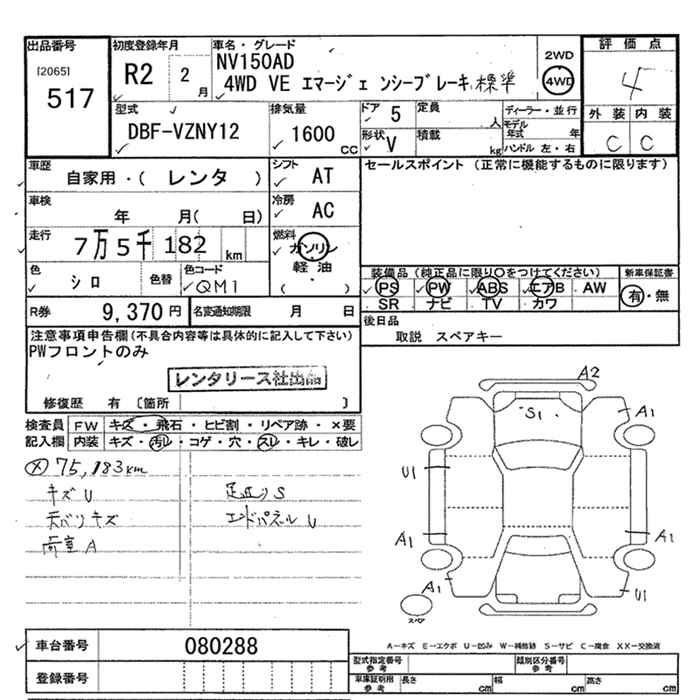 出品番号
[2065]
517
初度登録年月
R2 2 月
車名・グレード
NV150AD
4WD VE エマージェンシーブレーキ 標準
2WD
4WD
評価点
4
外装 内装
C C
型式
DBF-VZNY12
排気量
1600 CC
ドア 5
定員 人
形状 V
積載 kg
ディーラー・並行
モデル年式 年
ハンドル 左・右
車歴
自家用・( レンタ )
シフト AT
車検
年 月( 日)
冷房 AC
走行
7万5千182 km
燃料 ガソリン
軽油
( )
色 シロ
色替
色コード QM1
R券 9,370 円
名変通知期限 月 日
セールスポイント (正常に機能するものに限ります)
装備品 (純正品に限り○をつけてください)
新車保証書
PS PW ABS エアB AW
有・無
SR ナビ TV カワ
後日品
取説 スペアキー
注意事項申告欄 (不具合内容等は具体的に記入して下さい)
PWフロントのみ
レンタリース社出品
修復歴 有 〔箇所 〕
検査員記入欄
FW キズ・飛石・ヒビ割・リペア跡・×要
内装 キズ・汚レ・コゲ・穴・スレ・キレ・破レ
75,183km
キズ U
足廻り S
天バリキズ
エンドパネル U
荷室 A
A2
S1
A1
U1
A1
A1
A1
U1
スペア
A-キズ E-エクボ U-凹み W-補修跡 S-サビ C-腐食 XX-交換済
車台番号 080288
登録番号
型式指定番号 参考
類別区分番号 参考
車庫証明用 参考
長さ cm
幅 cm
高さ cm